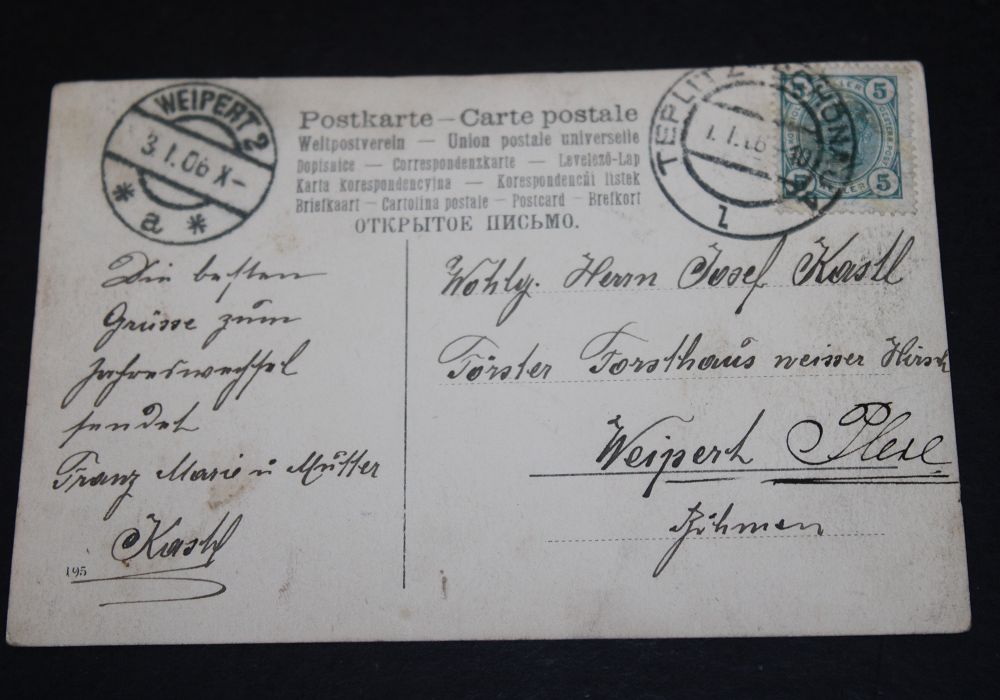 WEIPERT 2
3.I.06 X-
* a *
Postkarte – Carte postale
Weltpostverein – Union postale universelle
Dopisnice – Correspondenzkarte – Levelező-Lap
Karta korespondencyjna – Korespondenčni listek
Briefkaart – Cartolina postale – Postcard – Brefkort
ОТКРЫТОЕ ПИСЬМО.
TEPLITZ-SCHÖNAU
1
5 5
5 5
HELLER
Die besten
Grüsse zum
Jahreswechsel
sendet
Franz Marie u Mutter
Kastl
195
Wohlg. Herrn Josef Kastl
Förster Forsthaus weisser Hirsch
Weipert
Böhmen